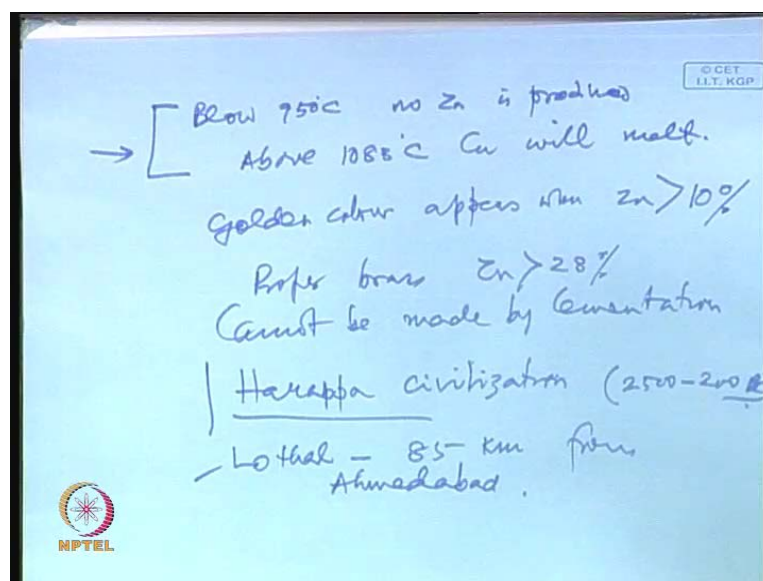 © CET
I.I.T. KGP
Blow 950°C no Zn is produced
→ Above 1083°C Cu will melt.
Golden colour appers when Zn > 10%
Proper brass Zn > 28%
Cannot be made by Cementation
Harappa civilization (2500-200
- Lothal - 85 km from
Ahmedabad.
NPTEL